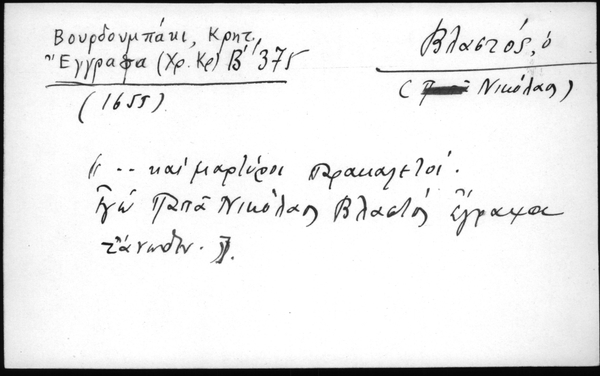 Βουρδουμπάκι, Κρητ.,
"Εγγραφα (Χρ. Κρ) Β' 375
(1655)
Βλαστός, ὁ
( Νικόλαος)
" .. καί μαρτύροι παρακαλετοί.
Ἐγώ Παπᾶ Νικόλαος Βλαστός ἔγραψα
τἄνωθεν. ".